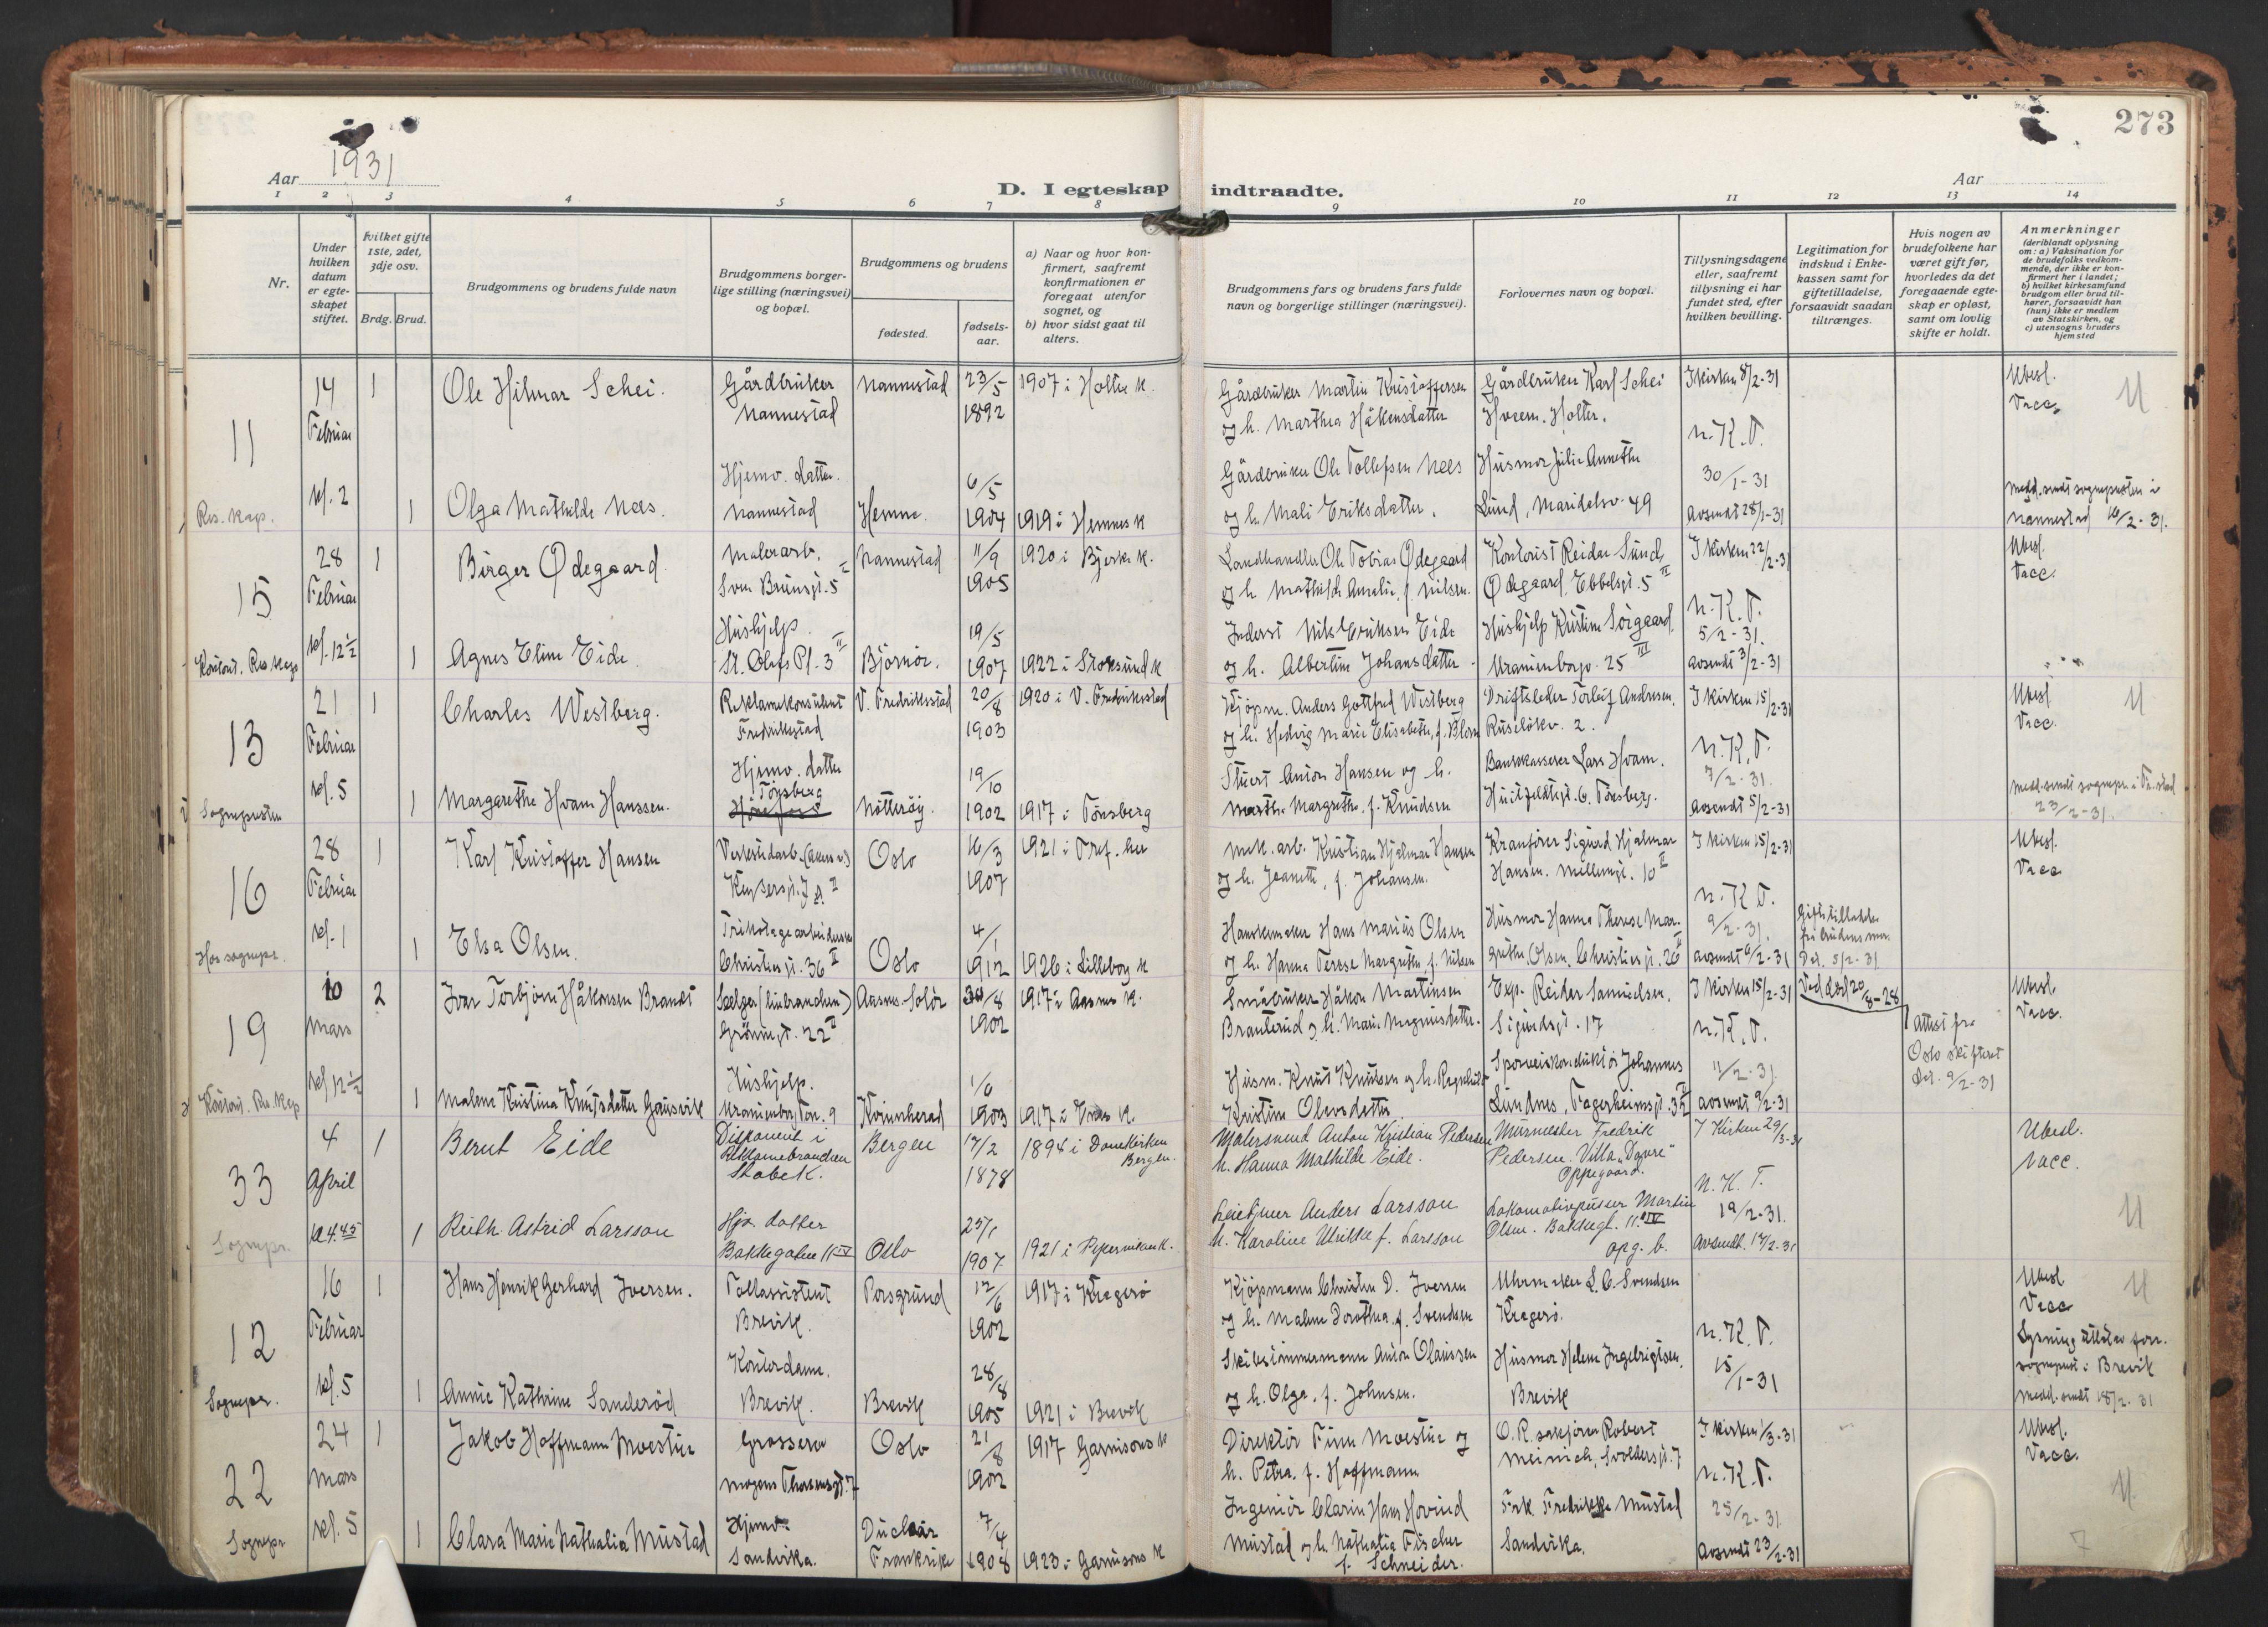 273
Aar 1931
D. I egteskap indtraadte.
Aar
1 2 3 4 5 6 7 8 9 10 11 12 13 14
Nr.
Under hvilken datum er egteskapet stiftet.
Hvilket gifte 1ste, 2det, 3dje osv.
Brdg. Brud.
Brudgommens og brudens fulde navn
Brudgommens borgerlige stilling (næringsvei) og bopæl.
Brudgommens og brudens
fødested.
fødselsaar.
a) Naar og hvor konfirmert, saafremt konfirmationen er foregaat utenfor sognet, og
b) hvor sidst gaat til alters.
Brudgommens fars og brudens fars fulde navn og borgerlige stillinger (næringsvei).
Forlovernes navn og bopæl.
Tillysningsdagene eller, saafremt tillysning ei har fundet sted, efter hvilken bevilling.
Legitimation for indskud i Enkekassen samt for giftetilladelse, forsaavidt saadan tiltrænges.
Hvis nogen av brudefolkene har været gift før, hvorledes da det foregaaende egteskap er opløst, samt om lovlig skifte er holdt.
Anmerkninger
(deriblandt oplysning om: a) Vaksination for de brudefolks vedkommende, der ikke er konfirmert her i landet; b) hvilket kirkesamfund brudgom eller brud tilhører, forsaavidt han (hun) ikke er medlem av Statskirken, og c) utensogns bruders hjemsted
11 14 Februar kl. 2 Res. kap.
1 Ole Hilmar Schei. Gårdbruker Nannestad Nannestad 23/5 1892 1907 i Holter K.
Gårdbruker Martin Kristoffersen og h. Marthea Håkensdatter
Gårdbruker Karl Schei Hvaem. Holter.
I kirken 8/2-31 n.K.T. 30/1-31 avsendt 28/1-31
Ubesl. Vacc.
1 Olga Mathilde Næs. Hjemv. datter. Nannestad Hemne 6/5 1904 1919 i Hemnes K
Gårdbruker Ole Tollefsen Næs og h. Mali Eriksdatter.
Husmor Julie Annethe Lund, Maridalsv. 49
Medd. sendt sognepresten i Nannestad 16/2-31.
15 28 Februar kl. 12½ Kontoret. Res. kap
1 Birger Ødegaard. Malerarb. Sven Brunsgt. 5 Nannestad 11/9 1905 1920 i Bjerke K.
Landhandler Ole Tobias Ødegaard og h. Mathilde Amalie, f. Nilsen.
Kontorist Reidar Sund Ødegaard, Ebbelsgt. 5 II
I kirken 22/2-31 n.K.T. 5/2-31. avsendt 3/2-31
Ubesl. Vacc.
1 Agnes Eline Eide. Hushjelp. St. Olafs Pl. 3 II Bjørnør. 19/5 1907 1922 i Stoksund K
Inderst Nils Eriksen Eide og h. Albertine Johansdatter
Hushjelp Kristine Sørgaard Uranienborgv. 25 III
13 21 Februar kl. 5 Sognepresten
1 Charles Westberg. Reklamekonsulent Fredrikstad V. Fredrikstad 20/8 1903 1920 i V. Fredrikstad
Kjøpm. Anders Gottfred Westberg og h. Hedvig Marie Elisabeth, f. Blom
Driftsleder Torleif Andresen. Ruseløkv. 2.
I kirken 15/2-31 n.K.T. 7/2-31. avsendt 5/2-31
Ubesl. Vacc.
1 Margarethe Hvam Hanssen. Hjemv. datter Tønsberg Nøtterøy. 19/10 1902 1917 i Tønsberg
Stuert Anton Hansen og h. Marthe Margrethe, f. Knudsen
Bankkasserer Lars Hvam. Huitfeldtsgt. 6. Tønsberg.
23/2-31.
16 28 Februar kl. 1 Hos sognepr.
1 Karl Kristoffer Hansen Verkstedarb. (Akers v.) Keysersgt. Oslo 16/3 1907 1921 i Tref. her
Mek. arb. Kristian Hjalmar Hansen og h. Jeanette, f. Johansen.
Kranfører Sigurd Hjalmar Hansen. Møllergt. 10 II
I kirken 15/2-31 n.K.T. 9/2-31. avsendt 6/2-31
Ubesl. Vacc
1 Elsa Olsen. Trikotagearbeiderske Christiesgt. 36 II Oslo 4/1 1912 1926 i Lilleborg K
Hanskemaker Hans Marius Olsen og h. Hanna Terese Margrethe, f. Nilsen
Husmor Hanna Therese Margrethe Olsen. Christiesgt. 26 II
Giftetilladelse fra brudens mor. Dat. 5/2-31.
19 10 Mars kl. 12½ Kontoret. Res. kap
2 Ivar Torbjørn Håkonsen Brandt Selger (linbranchen) Grønnegt. 22 II Aasnes-Solør 30/8 1902 1917 i Aasnes K.
Småbruker Håkon Martinsen Branterud og h. Marie Magnusdatter.
Exp. Reidar Samuelsen. Sigurdsgt. 17
I kirken 15/2-31 n.K.T. 11/2-31. avsendt 9/2-31
Ved død 20/8-28
Attest fra Oslo skifteret dat. 9/2-31
Ubesl. Vacc.
1 Malene Kristina Knutsdatter Gausvik Hushjelp. Uranienborg Terr. 9 Kvinnherad 1/6 1903 1917 i Enes K.
Husm. Knut Knutsen og h. Ragnhild Kristine Olersdatter.
Sporveiskonduktør Johannes Lundnes, Fagerheimsgt. 3 II
33 4 April kl. 4.45 Sognepr.
1 Bernt Eide Disponent i Reklamebranchen Stabekk. Bergen 17/2 1878 1894 i Domkirken Bergen.
Malersvend Anton Kristian Pedersen h. Hanna Mathilde Eide.
Murmester Fredrik Pedersen. Villa "Dovre" Oppegaard.
I Kirken 29/3-31 N.K.T. 19/2-31. Avsendt. 17/2-31
Ubesl. Vacc.
1 Ruth Astrid Larsson Hjv. datter Bakkegaten 11 IV Oslo 25/1 1907 1921 i Piperviken K.
Leiegjører Anders Larsson h. Karoline Ulrikke f. Larsson
Lokomotivpusser Martin Olsen. Bakkegt. 11 IV opg. b.
12 16 Februar kl. 5 Sognepr.
1 Hans Henrik Gerhard Iversen. Tollassistent Brevik. Porsgrund 12/6 1902 1917 i Kragerø
Kjøpmann Christen D. Iversen og h. Malene Dorothea, f. Svendsen
Uhrmaker L.C. Svendsen Kragerø.
n.K.T. 15/1-31
Ubesl Vacc
Lysning utstedt for sognepr. i Brevik
Medd. sendt 18/2-31
1 Annie Kathrine Sanderød Kontordame. Brevik. Brevik 28/8 1905 1921 i Brevik
Skibstømmermann Anton Olaussen og h. Olga, f. Johnsen.
Husmor Helene Ingebrigtsen. Brevik
22 24 Mars kl. 5 Sognepr
1 Jakob Hoffmann Moestue Grosserer Mogens Thorsensgt. 7 Oslo 21/8 1902 1917 Garnisons K
Direktør Finn Moestue og h. Petra, f. Hoffmann
O.R. sakfører Robert Meinich, Svoldersgt. 7
I kirken 1/3-31 n.K.T. 25/2-31. avsendt 23/2-31
Ubesl. Vacc.
1 Clara Marie Nathalia Mustad Hjemv. Sandvika. Duclair Frankrike 7/4 1908 1923 i Garnisons K
Ingeniør Clarin Hans Hovind Mustad og h. Nathalia Fischer f. Schneider.
Frk. Fredrikke Mustad Sandvika.